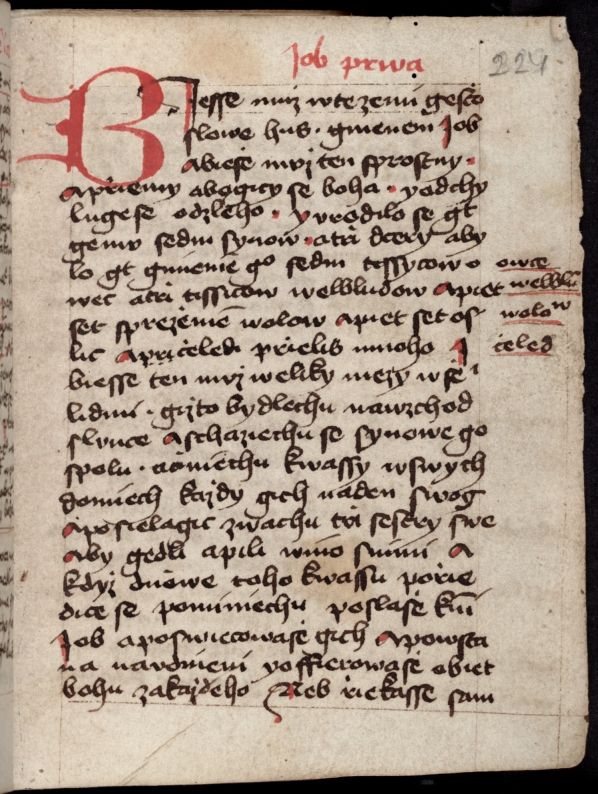 Job prwa
224
Biesse muz wtezemi gesto
slowe hus · gmenem Job
abiese muz ten sprostny ·
aprziemy abogicy se boha · yodchy
lugese odzleho · yvrodilo se gt
gemv sedm synow · atrzi dcery aby
lo gt gmienie go sedm tissycow o
wec atrzi tissicow welbludow apiet
set sprezenie wolow apiet set os
lic apriceledi prielis mnoho J
biesse ten muz weliky mezy wse
lidmi · gizto bydlechu nawzchod
slunce aschaziechu se synowe go
spolu · aciniechu kwassy wswych
domiech kazdy gich naden swog
aposielagic zwachu tri sestry swe
aby gedli apili wino snimi a
kdyz dnowe toho kwassu porie
dice se pominiechu poslase knim
Job aposwiecowase gich apowsta
na navsvieni yoffierowase obiet
bohu zakazdeho Neb riekasse sam
owce
welblud
wolow
celed